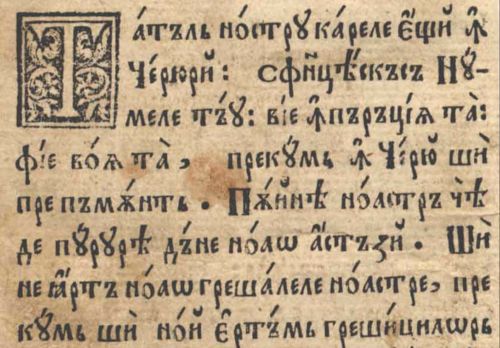 Татъль нострꙋ кареле є҆́щй ꙟ҆
Че́рюрй: сфи҆нцѣ́скъсъ Нꙋ́-
меле тъ́ꙋ: ві́е ꙟ҆пъръці́ѧ та̀:
фі́е во́ѧ та̀, прекꙋ́мь ꙟ҆ Че́рю ши
пре пъмѫ́нть. Пѫ́йнѣ ноастръ чѣ̀
де пꙋ́рꙋрѣ дъ́не но́аѡ а҆́стъзй. Шй
не ꙗ҆́ртъ но́аѡ греша́леле ноа́стре, пре
кꙋ́мь ши но́й є҆ртъ́мь греши́цилѡрь